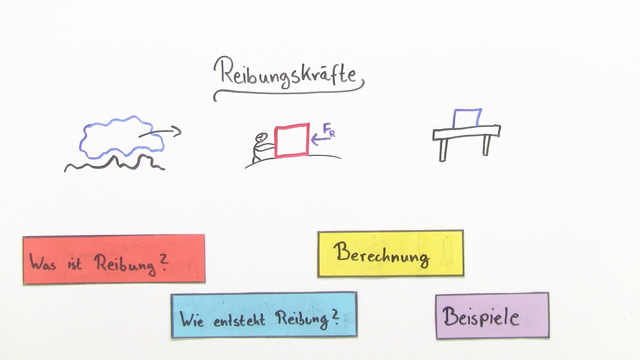 Reibungskräfte
F_R
Was ist Reibung?
Berechnung
Wie entsteht Reibung?
Beispiele